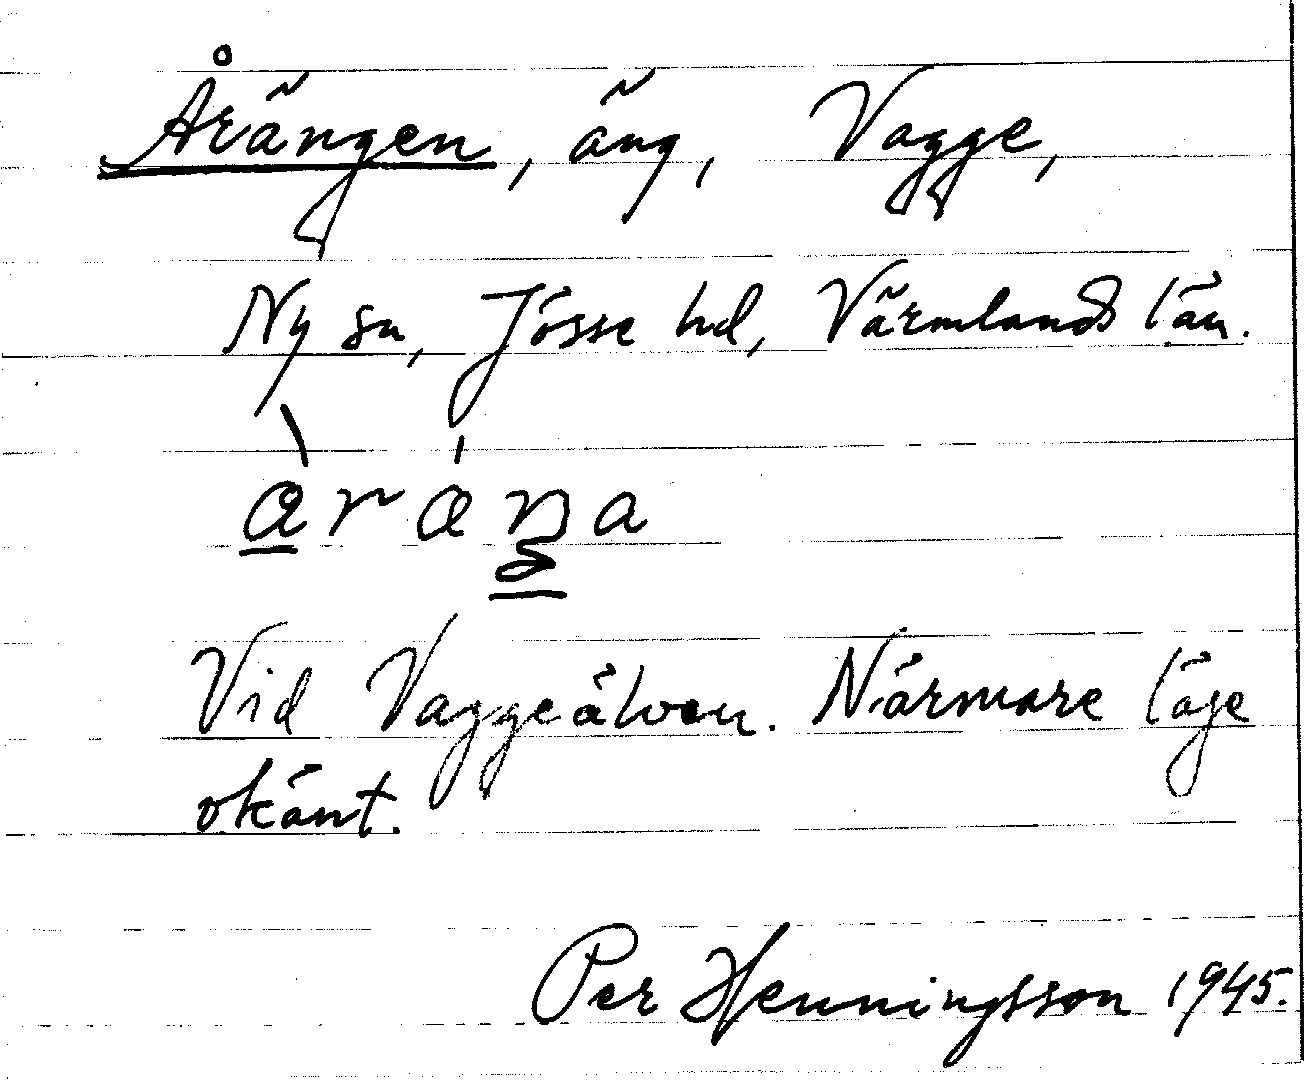 Årängen, äng, Vagge,
Ny sn, Jösse hd, Värmlands län.
Vid Vaggeälven. Närmare läge
okänt.
Per Henningsson 1945.